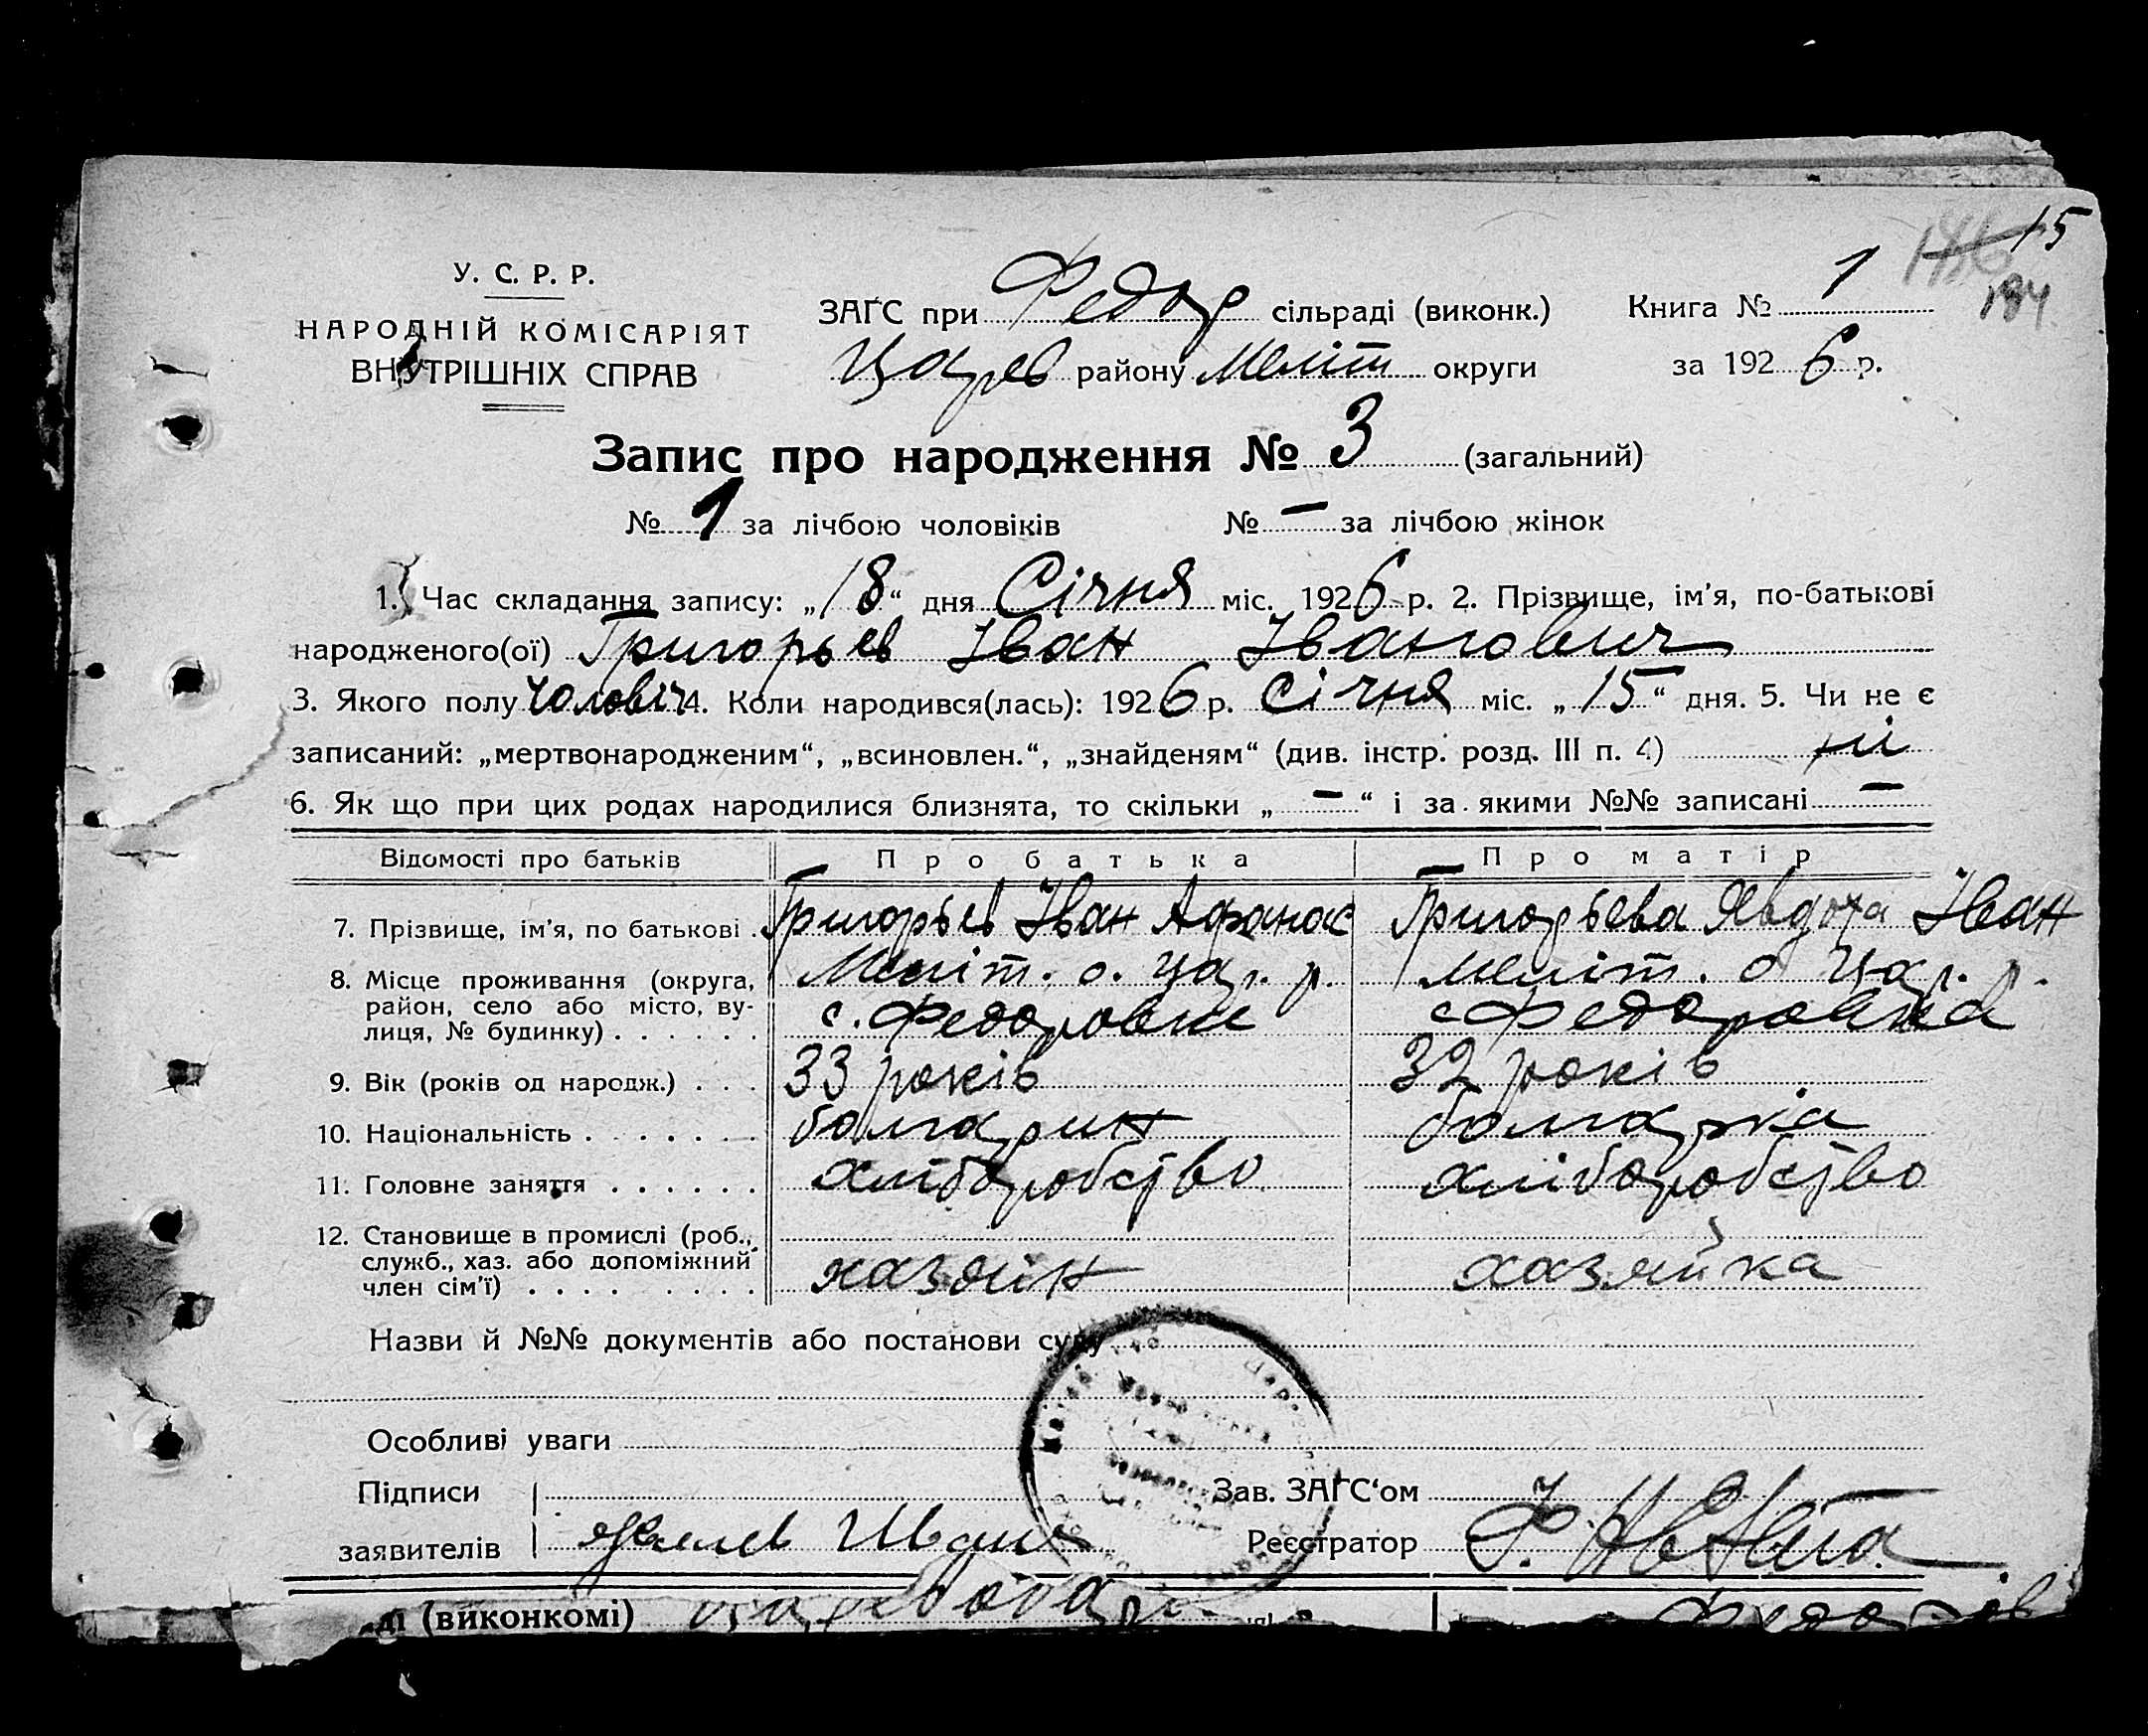 15
194
У. С. Р. Р.
НАРОДНІЙ КОМІСАРІЯТ
ВНУТРІШНІХ СПРАВ
ЗАҐС при Федор сільраді (виконк.) Книга № 1
Царев району Меліт округи за 1926 р.
Запис про народження № 3 (загальний)
№ 1 за лічбою чоловіків № — за лічбою жінок
1. Час складання запису: „18“ дня Січня міс. 1926 р. 2. Прізвище, ім'я, по-батькові
народженого(ої) Григорьев Іван Іванович
3. Якого полу чоловіч 4. Коли народився(лась): 1926 р. Січня міс. „15“ дня. 5. Чи не є
записаний: „мертвонародженим“, „всиновлен.“, „знайденям“ (див. інстр. розд. III п. 4) ні
6. Як що при цих родах народилися близнята, то скільки „—“ і за якими №№ записані —
Відомості про батьків Про батька Про матір
7. Прізвище, ім'я, по батькові Григорьев Іван Афанас Григорьева Явдоха Іван
8. Місце проживання (округа, Меліт. о. Цар. р. Меліт. о Цар. р.
район, село або місто, ву- с. Федоровке с Федоровка
лиця, № будинку)
9. Вік (років од народж.) 33 років 32 років
10. Національність болгарин болгарка
11. Головне заняття хліборобство хліборобство
12. Становище в промислі (роб.,
служб., хаз. або допоміжний хазяїн хазяйка
член сім'ї)
Назви й №№ документів або постанови суду
Особливі уваги
Підписи Зав. ЗАҐС'ом
заявителів Иван Реєстратор Ф.
ді (виконкомі)